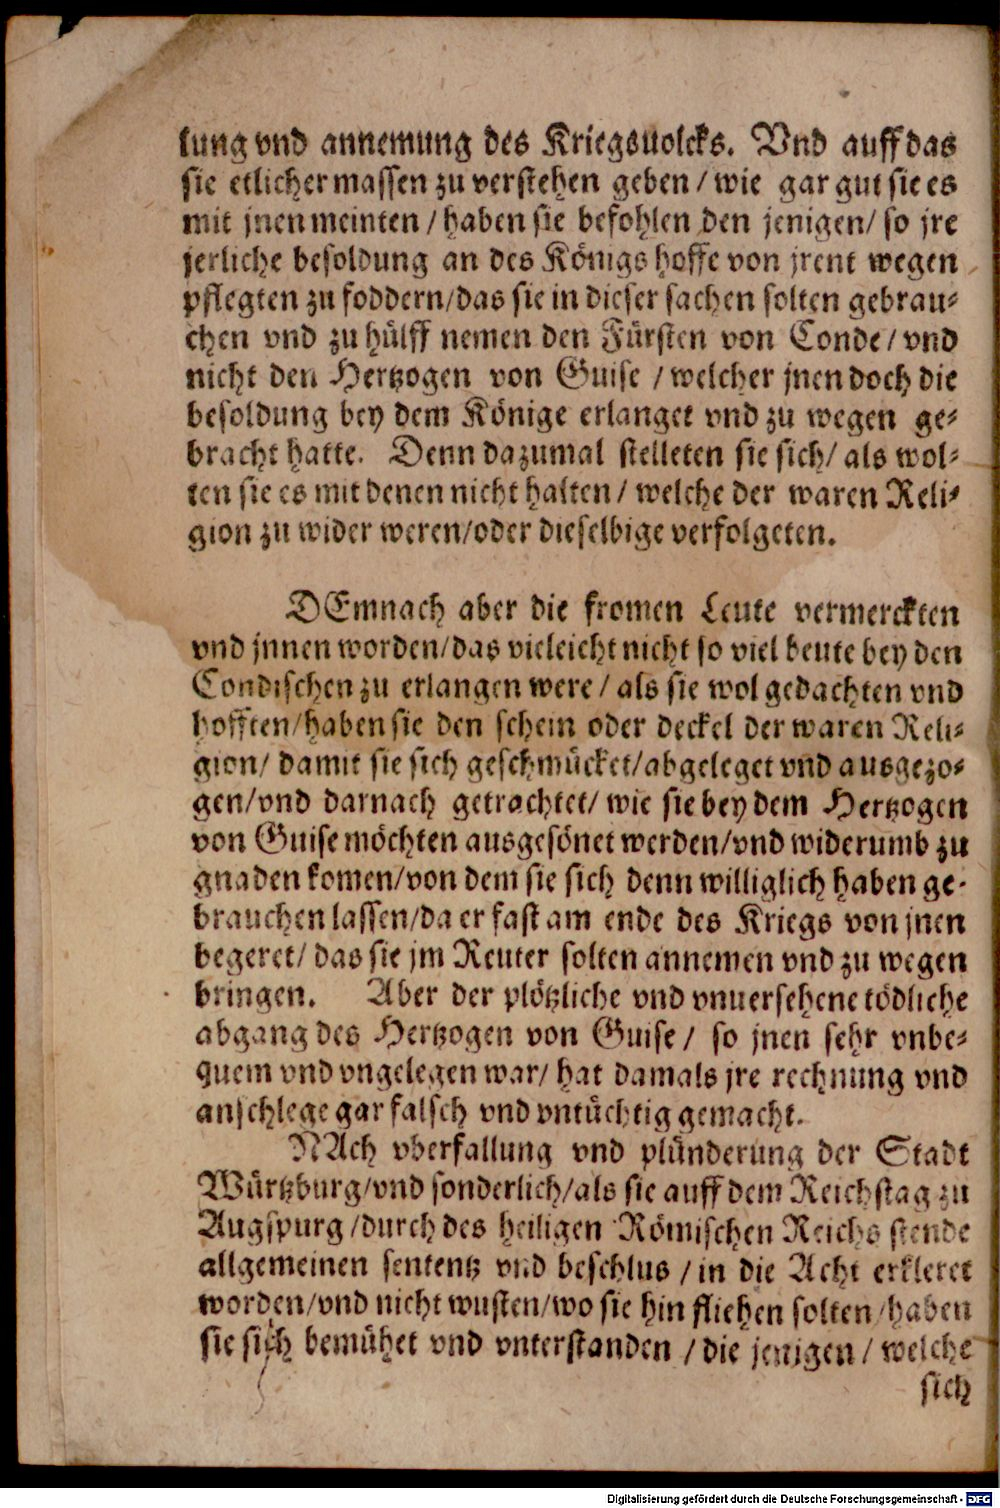 lung vnd annemung des Kriegsuolcks. Vnd auff das
sie etlicher massen zu verstehen geben / wie gar gut sie es
mit jnen meinten / haben sie befohlen den jenigen / so jre
jerliche besoldung an des Königs hoffe von jrent wegen
pflegten zu foddern / das sie in dieser sachen solten gebrau-
chen vnd zu hülff nemen den Fürsten von Conde / vnd
nicht den Hertzogen von Guise / welcher jnen doch die
besoldung bey dem Könige erlanget vnd zu wegen ge-
bracht hatte. Denn dazumal stelleten sie sich / als wol-
ten sie es mit denen nicht halten / welche der waren Reli-
gion zu wider weren / oder dieselbige verfolgeten.
DEmnach aber die fromen Leute vermerckten
vnd jnnen worden / das vieleicht nicht so viel beute bey den
Condischen zu erlangen were / als sie wol gedachten vnd
hofften / haben sie den schein oder deckel der waren Reli-
gion / damit sie sich geschmücket / abgeleget vnd ausgezo-
gen / vnd darnach getrachtet / wie sie bey dem Hertzogen
von Guise möchten ausgesönet werden / vnd widerumb zu
gnaden komen / von dem sie sich denn williglich haben ge-
brauchen lassen / da er fast am ende des Kriegs von jnen
begeret / das sie jm Reuter solten annemen vnd zu wegen
bringen. Aber der plötzliche vnd vnuersehene tödliche
abgang des Hertzogen von Guise / so jnen sehr vnbe-
quem vnd vngelegen war / hat damals jre rechnung vnd
anschlege gar falsch vnd vntüchtig gemacht.
NAch vberfallung vnd plünderung der Stadt
Würtzburg / vnd sonderlich / als sie auff dem Reichstag zu
Augspurg / durch des heiligen Römischen Reichs stende
allgemeinen sententz vnd beschlus / in die Acht erkleret
worden / vnd nicht wusten / wo sie hin fliehen solten / haben
sie sich bemühet vnd vnterstanden / die jenigen / welche
sich
Digitalisierung gefördert durch die Deutsche Forschungsgemeinschaft - DFG